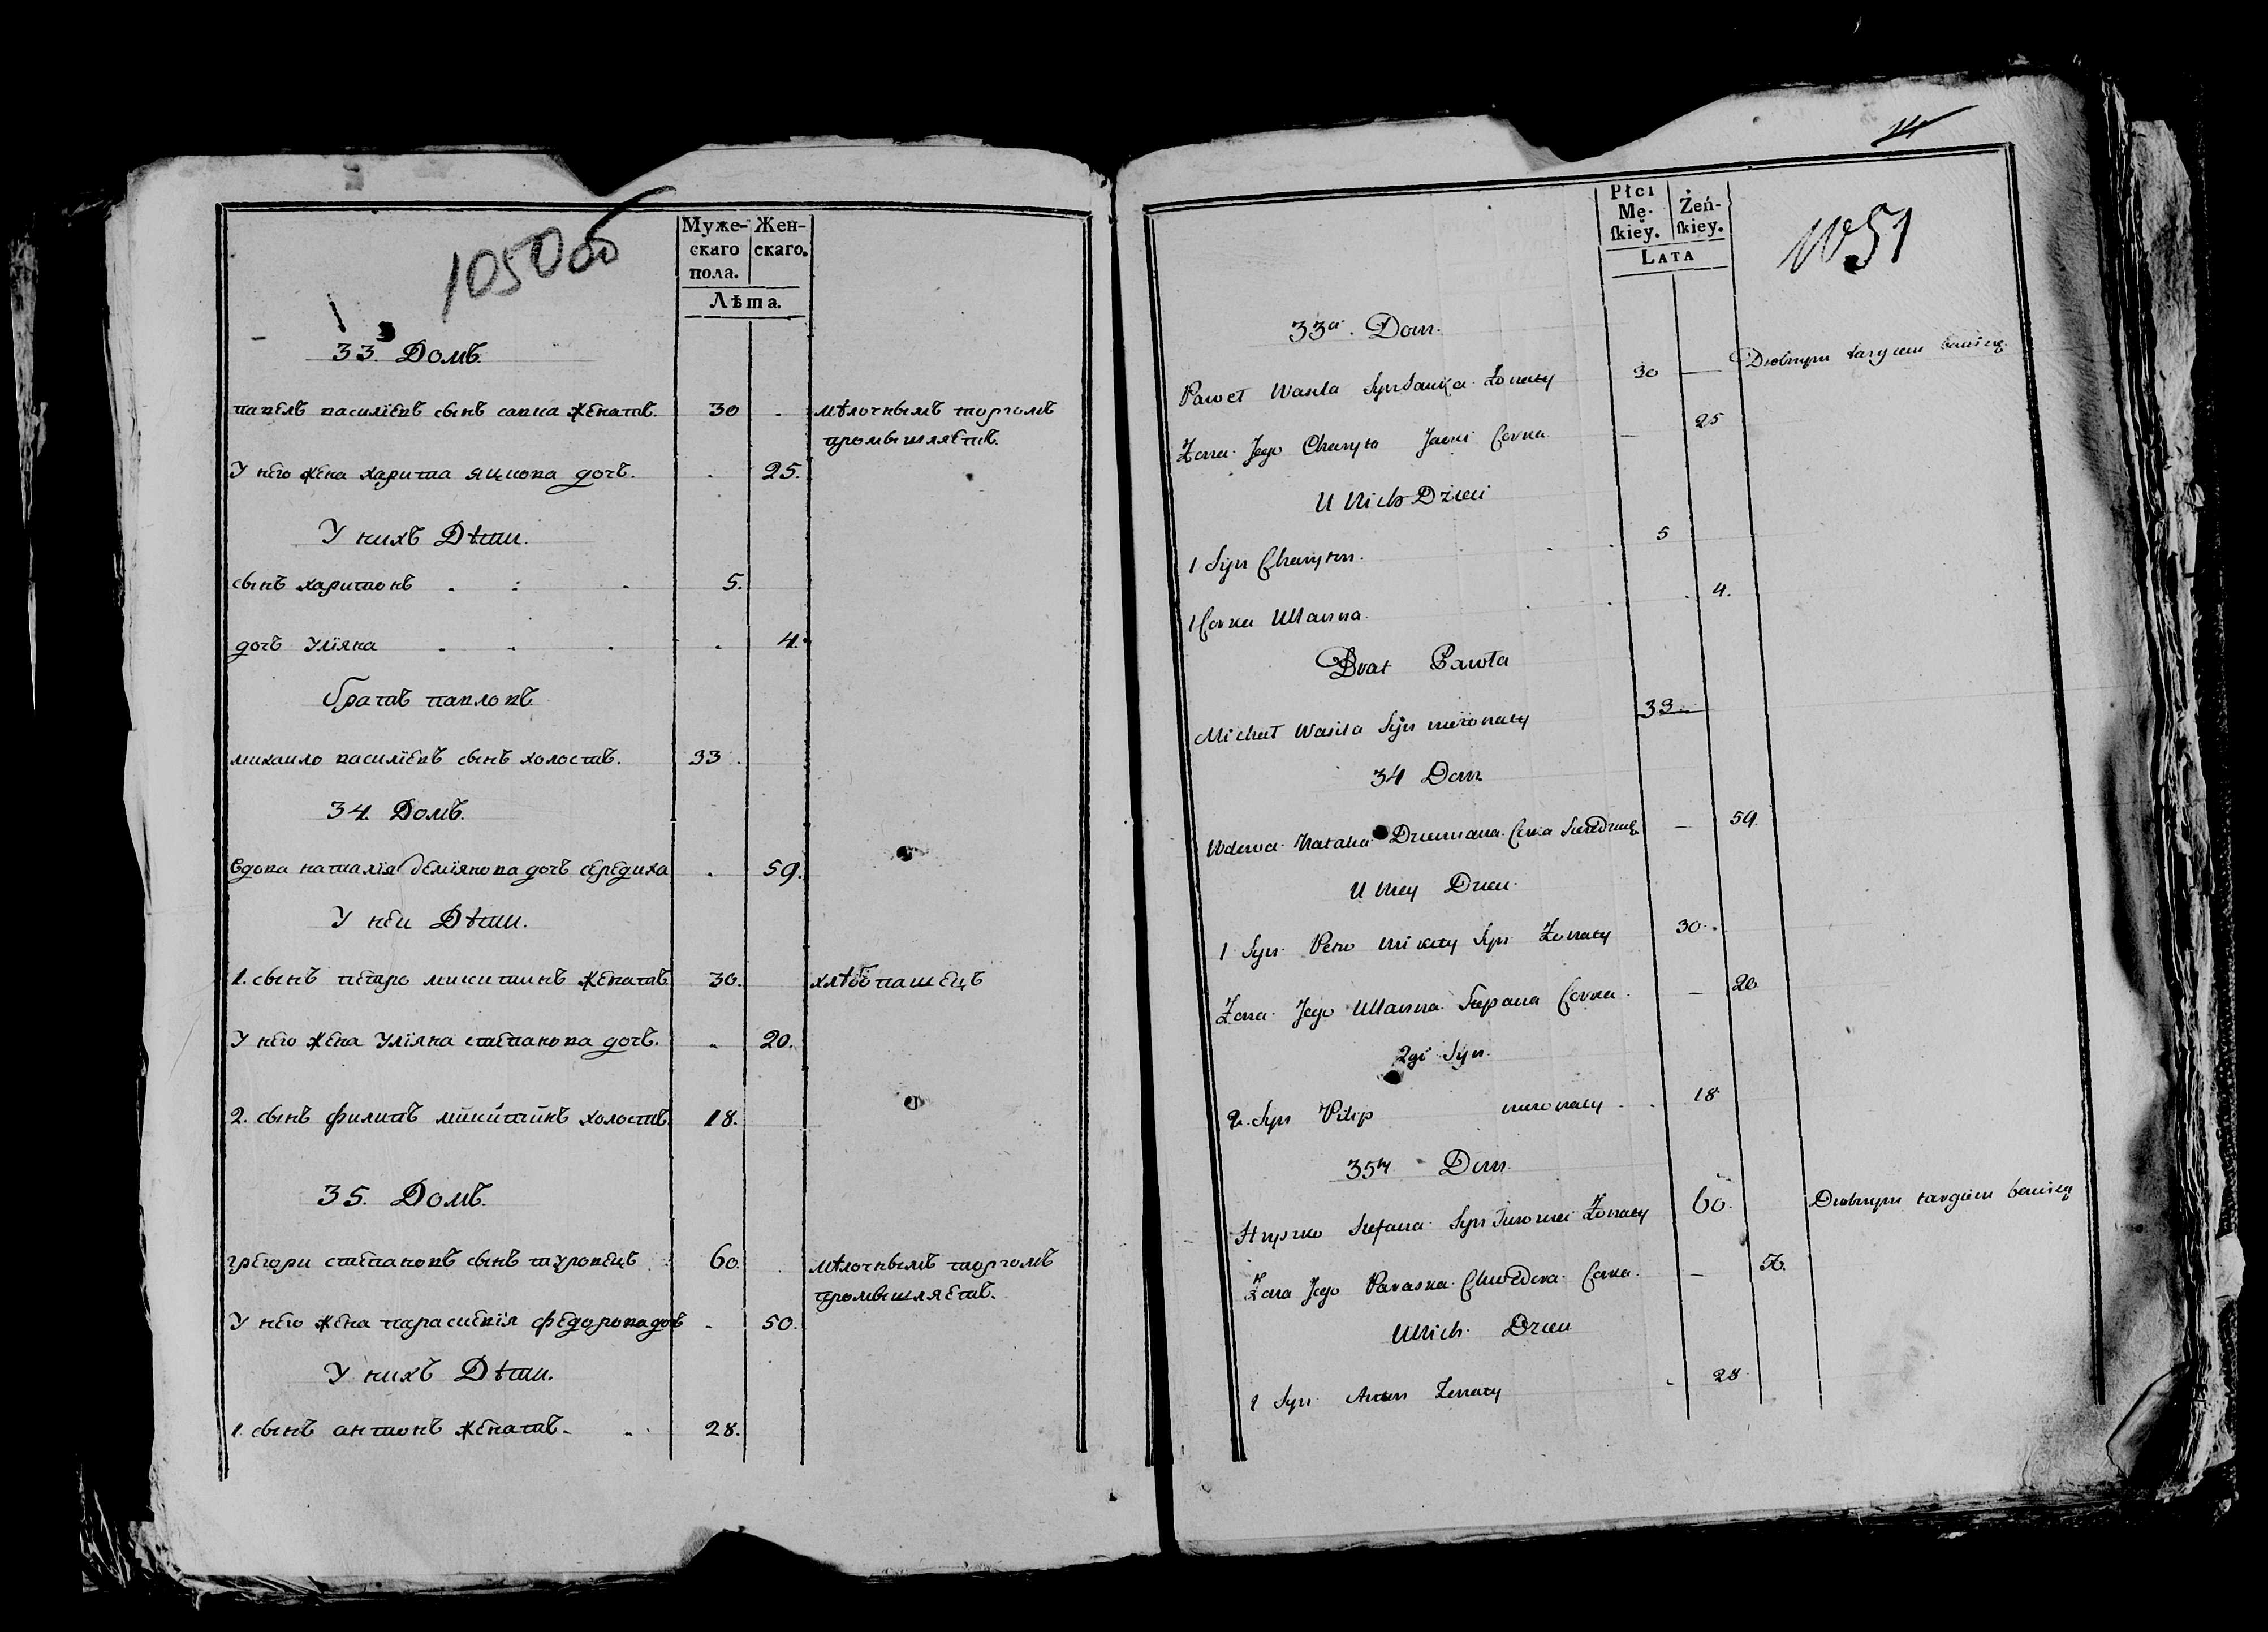 105 об
Муже-
скаго
пола.
Жен-
скаго.
Лѣта.
33. Домъ.
павелъ василїевъ сынъ савка женатъ. 30 мѣлочнымъ торгомъ
промышляетъ.
У него жена харитта яцкова дочь. 25.
У нихъ Дѣти.
сынъ харитонъ 5.
дочь Улїяна 4.
братъ павловъ
михаило василїевъ сынъ холостъ. 33.
34. Домъ.
вдова наталїя демїянова дочь середиха 59.
У неи Дѣти.
1. сынъ петро микитинъ женатъ. 30. хлѣбопашецъ
У него жена Улїяна степанова дочь. 20.
2. сынъ филипъ микитинъ холостъ. 18.
35. Домъ.
григори степановъ сынъ туровецъ 60. мѣлочнымъ торгомъ
промышляетъ.
У него жена парасковїя федорова дочь 50.
У нихъ Дѣти.
1. сынъ антонъ женатъ. 28.
Płci
Mę-
ſkiey.
Żeń-
ſkiey.
Lata
33ci Dom.
Paweł Wasila Syn Sauka Żonaty 30 — Drobnym targiem bawi się
Żona Jego Charyta Jacki Corka — 25
U Nich Dzieci
1 Syn Charyton. 5
1 Corka Ullanna 4.
Brat Pawła
Michał Wasila Syn nieżonaty 33
34 Dom
Wdowa Natalia Dziemiana Corka — 59.
U Niey Dzieci
1 Syn Petro Mikity Syn Żonaty 30.
Żona Jego Ullanna Stepana Corka — 20
2gi Syn.
2. Syn Pilip nieżonaty 18
35ty Dom.
Hryszko Stefana Syn Żonaty 60. Drobnym targiem bawi się
Żona Jego Paraska Chwedora Corka. — 50.
U Nich Dzieci
1 Syn Anton Żonaty 28